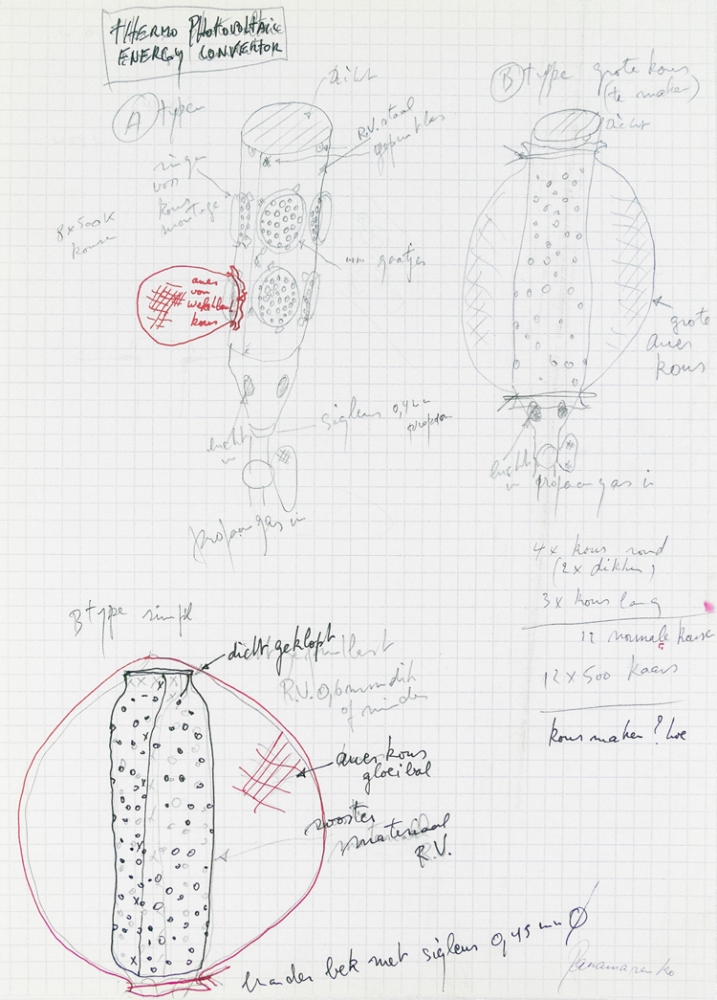 THERMO PHOTOVOLTAIC
ENERGY CONVERTOR
A type
dicht
R.V. staal
gepuntlas
ringen
van
kous
montage
8 x 500 K
kousen
auer
van
kous
mm gaatjes
lucht
in
sigleur 0,4 mm
propaangas in
B type grote kous
(te maken)
dicht
grote
auer
kous
lucht
in
propaangas in
4x kous rond
(2x dikker)
3x kous lang
12 normale kousen
12 x 500 kaars
kous maken? hoe
B type simpel
dicht geklopt
R.V. 0,6 mm dik
of minder
auerkous
gloeibal
rooster
materiaal
R.V.
brander bek met sigleur 0,45 mm Ø
Panamarenko